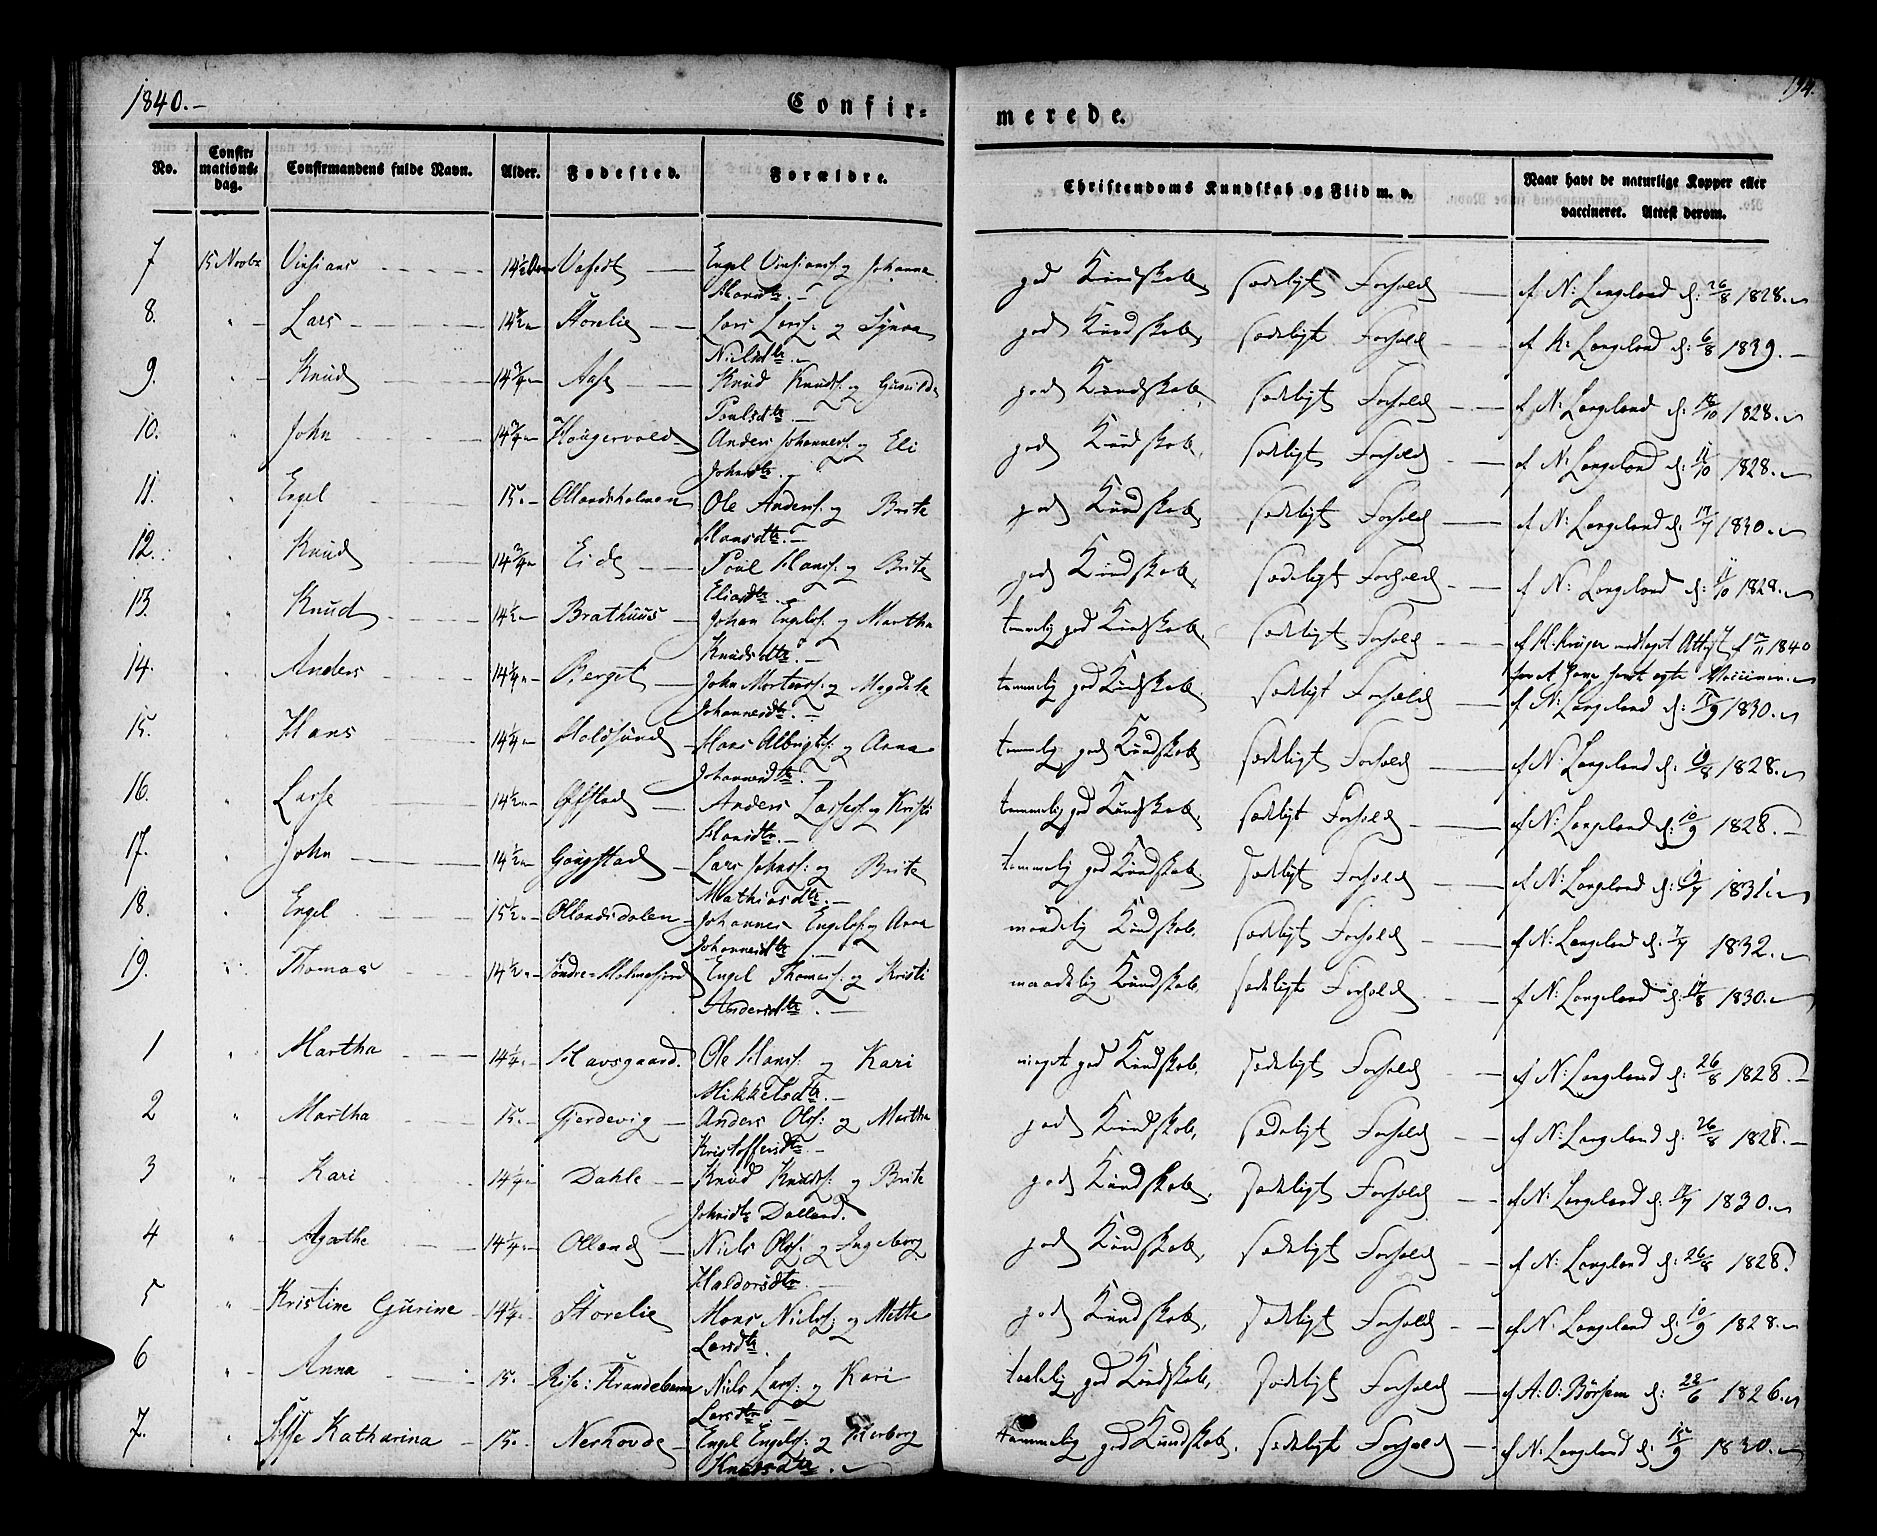 1840.-
Confir-
merede.
194.
No.
Confir-
mations-
dag.
Confirmandens fulde Navn.
Alder.
Fødested.
Forældre.
Christendoms Kundskab og Flid m. v.
Naar havt de naturlige Kopper eller
vaccineret. Attest derom.
7 15 Novbr Vinsians 14½ Engel Vinsians: og Johanna god Kundskab, sædeligt Forhold af N: Langeland d: 26/8 1828.
Hansdtr. -
8. " Lars 14½ Storelie Lars Larss: og Synva god Kundskab, sædeligt Forhold af N: Langeland d: 6/8 1839. -
Nielsdtr. -
9. " Knud 14¾ Aase Knud Knuds: og Gunilde god Kundskab, sædeligt Forhold af N: Langeland d: 18/10 1828.
Poulsdtr. -
10. " John 14¾ Haugervold Anders Johanness: og Eli god Kundskab, sædeligt Forhold af N: Langeland d: 11/10 1828.
Johnsdtr. -
11. " Engel 15. Ollandsholmen Ole Anderss: og Brite god Kundskab, sædeligt Forhold af N: Langeland d: 17/7 1830.
Hansdtr. -
12. " Knud 14¾ Eide Poul Hanss: og Brite god Kundskab, sædeligt Forhold af N: Langeland d: 11/10 1828.
Eliasdtr.
13. " Knud 14½ Brathuus Johan Engels: og Martha temmelig god Kundskab, sædeligt Forhold af H. Krüger modtaget Attest af 1840
Knudsdtr. - ægte Vacciner.
14. " Anders 14¼ Berget John Mortens: og Magdele temmelig god Kundskab, sædeligt Forhold af N: Langeland d: 1830.
Johannesdtr. -
15. " Hans 14¼ Holdsund Hans Albrigts: og Anna temmelig god Kundskab, sædeligt Forhold af N: Langeland d: 1828.
Johannesdtr. -
16. " Lasse 14½ Ofstad Anders Lasses: og Kristi temmelig god Kundskab, sædeligt Forhold af N: Langeland d: 10/9 1828. -
Hansdtr. -
17. " John 14½ Gougstad Lars Johns: og Brite temmelig god Kundskab, sædeligt Forhold af N: Langeland d: 1831.
Mathiasdtr. -
18. " Engel 15½ Ollandsdalen Johannes Engels: og Anna maadelig Kundskab, sædeligt Forhold af N: Langeland d: 7/7 1832.
Johannesdtr. -
19. " Thomas 14½ Søndre-Holmefiord Engel Thomass: og Kristi maadelig Kundskab, sædeligt Forhold af N: Langeland d: 17/8 1830.
Andersdtr. -
1 " Martha 14¼ Havsgaard. Ole Hanss: og Kari meget god Kundskab, sædeligt Forhold af N: Langeland d: 26/8 1828. -
Mikkelsdtr. -
2 " Martha 15. Gjerdevig Anders Ols: og Martha god Kundskab, sædeligt Forhold af N: Langeland d: 26/8 1828. -
Kristoffersdtr. -
3 " Kari 14¼ Dahle Knud Knuds: og Brite god Kundskab, sædeligt Forhold af N: Langeland d: 17/7 1830.
Johnsdtr Dalland.
4 " Agathe 14¼ Olland Niels Ols: og Ingeborg god Kundskab, sædeligt Forhold af N: Langeland d: 26/8 1828.
Haldorsdtr. -
5 " Kristine Gurine 14¼ Storelie Mons Niels: og Mette god Kundskab, sædeligt Forhold af N: Langeland d: 10/9 1828.
Larsdtr.
6 " Anna 15. Rise: Niels Larss: og Kari god Kundskab, sædeligt Forhold af A: O: Børsem d: 28/6 1826.
Larsdtr. -
7. " Katharina 15. Neshovde Engel Engels: og temmelig god Kundskab, sædeligt Forhold af N: Langeland d: 15/9 1830.
Knudsdtr. -